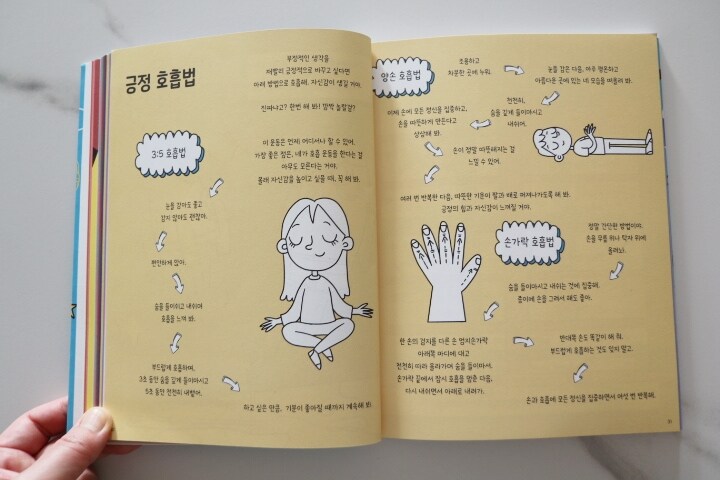 긍정 호흡법
부정적인 생각을
재빨리 긍정적으로 바꾸고 싶다면
아래 방법으로 호흡해. 자신감이 생길 거야.
진짜냐고? 한번 해 봐! 깜짝 놀랄걸?
이 운동은 언제, 어디서나 할 수 있어.
가장 좋은 점은, 네가 호흡 운동을 한다는 걸
아무도 모른다는 거야.
몰래 자신감을 높이고 싶을 때, 꼭 해 봐.
3:5 호흡법
눈을 감아도 좋고
감지 않아도 괜찮아.
편안하게 앉아.
숨을 들이쉬고 내쉬며
호흡을 느껴 봐.
부드럽게 호흡하며,
3초 동안 숨을 깊게 들이마시고
5초 동안 천천히 내뱉어.
하고 싶은 만큼, 기분이 좋아질 때까지 계속해 봐.
양손 호흡법
조용하고
차분한 곳에 누워.
눈을 감은 다음, 아주 평온하고
아름다운 곳에 있는 네 모습을 떠올려 봐.
천천히,
숨을 깊게 들이마시고
내쉬어.
이제 손에 모든 정신을 집중하고,
손을 따뜻하게 만든다고
상상해 봐.
손이 정말 따뜻해지는 걸
느낄 수 있어.
여러 번 반복한 다음, 따뜻한 기운이 팔과 배로 퍼져나가도록 해 봐.
긍정의 힘과 자신감이 느껴질 거야.
손가락 호흡법
정말 간단한 방법이야.
손을 무릎 위나 탁자 위에
올려놔.
숨을 들이마시고 내쉬는 것에 집중해.
종이에 손을 그려서 해도 좋아.
한 손의 검지를 다른 손 엄지손가락
아래쪽 마디에 대고
천천히 따라 올라가며 숨을 들이마셔.
손가락 끝에서 잠시 호흡을 멈춘 다음,
다시 내쉬면서 아래로 내려가.
반대쪽 손도 똑같이 해 줘.
부드럽게 호흡하는 것도 잊지 말고.
손과 호흡에 모든 정신을 집중하면서 여섯 번 반복해.